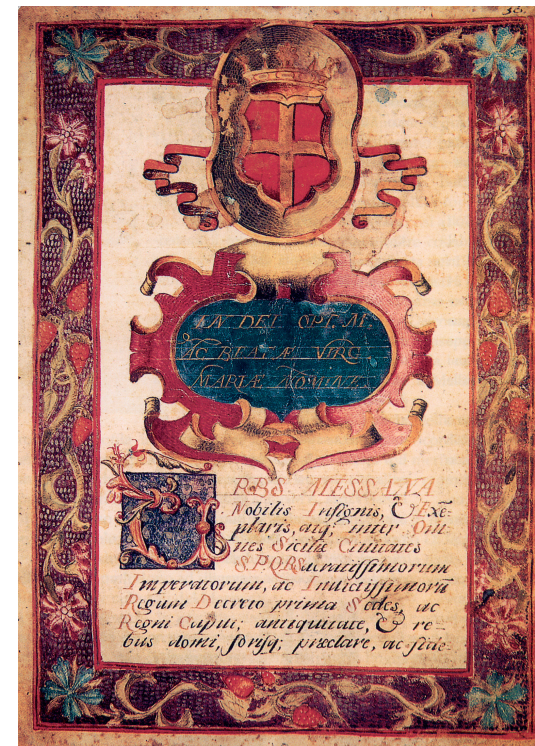 30.
IN DEI OPT. M.
AC BEATÆ VIRG.
MARIÆ NOMINE
URBS MESSANA
Nobilis Insignis, & Exē-
plaris, atq; inter Om-
nes Siciliæ Ciuitates
S.P.Q.R. Sacratissimorum
Imperatorum, ac Inuictissimorū
Regum Decreto prima Sedes, ac
Regni Caput; antiquitate, & re-
bus domi, forisq; præclare, ac fide-